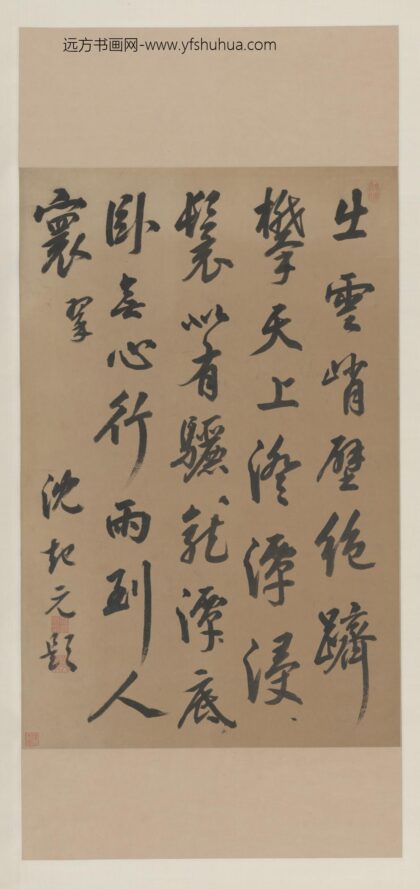 远方书画网-www.yfshuhua.com
出雲峭壁絶躋
攀天上澄潭浸
鬟似有驪龍潭底
臥無心行雨到人
寰
翠
沈起元題